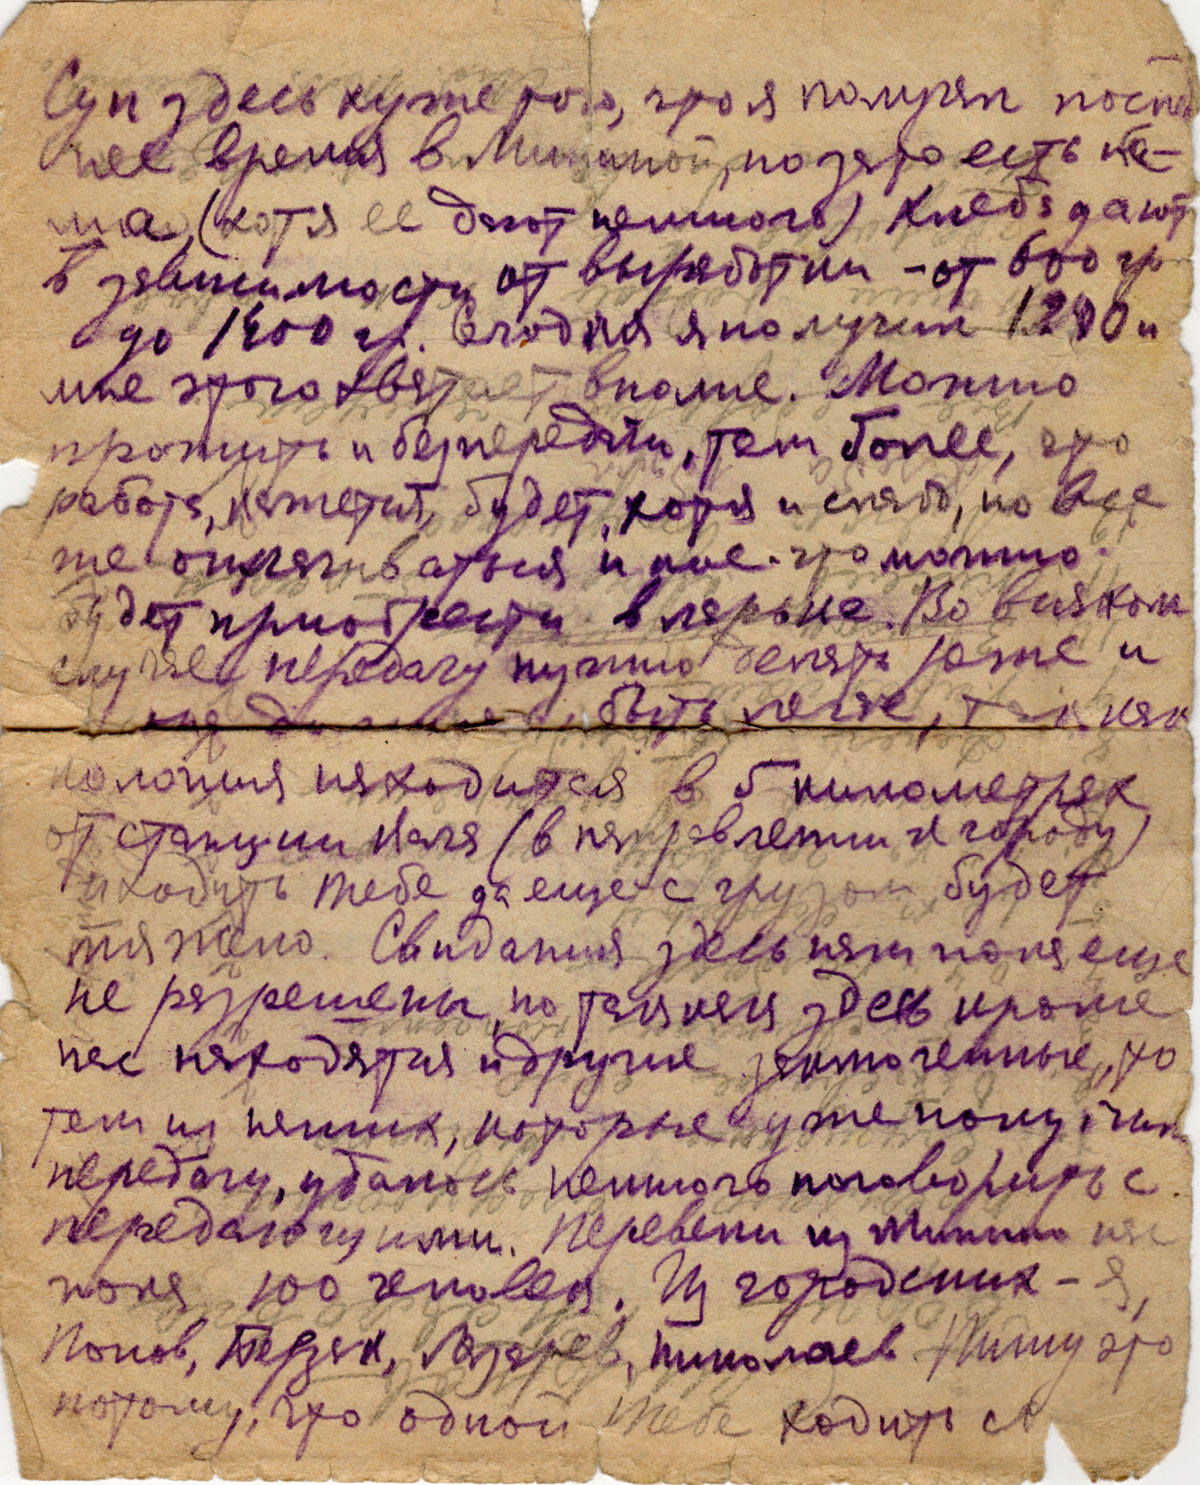 Суп здесь хуже того, что я получал послед
нее время в Мишиной, но зато есть ка-
ша, (хотя ее дают немного) Хлеба дают
в зависимости от выработки - от 600 гр
до 1400 гр. Сегодня я получил 1280 и
мне этого хватает вполне. Можно
прожить и без передачи, тем более, что
работа, кажется, будет, хотя и слабо, но все
же оплачиваться и кое-что можно
будет приобрести в ларьке. Во всяком
случае передачу нужно делать реже и
она должна быть легче, так как
колония находится в 5 километрах
от станции Каля (в направлении к городу)
и ходить тебе да еще с грузом будет
тяжело. Свидания здесь нам пока еще
не разрешены, но так как здесь кроме
нас находятся и другие заключенные, то
тем из наших, которые уже получили
передачу, удалось немного поговорить с
передающими. Перевели из Минино нас
пока 100 человек. Из городских - я,
Попов, Терзяк, Лазарев, Николаев. Пишу это
потому, что одной тебе ходить с